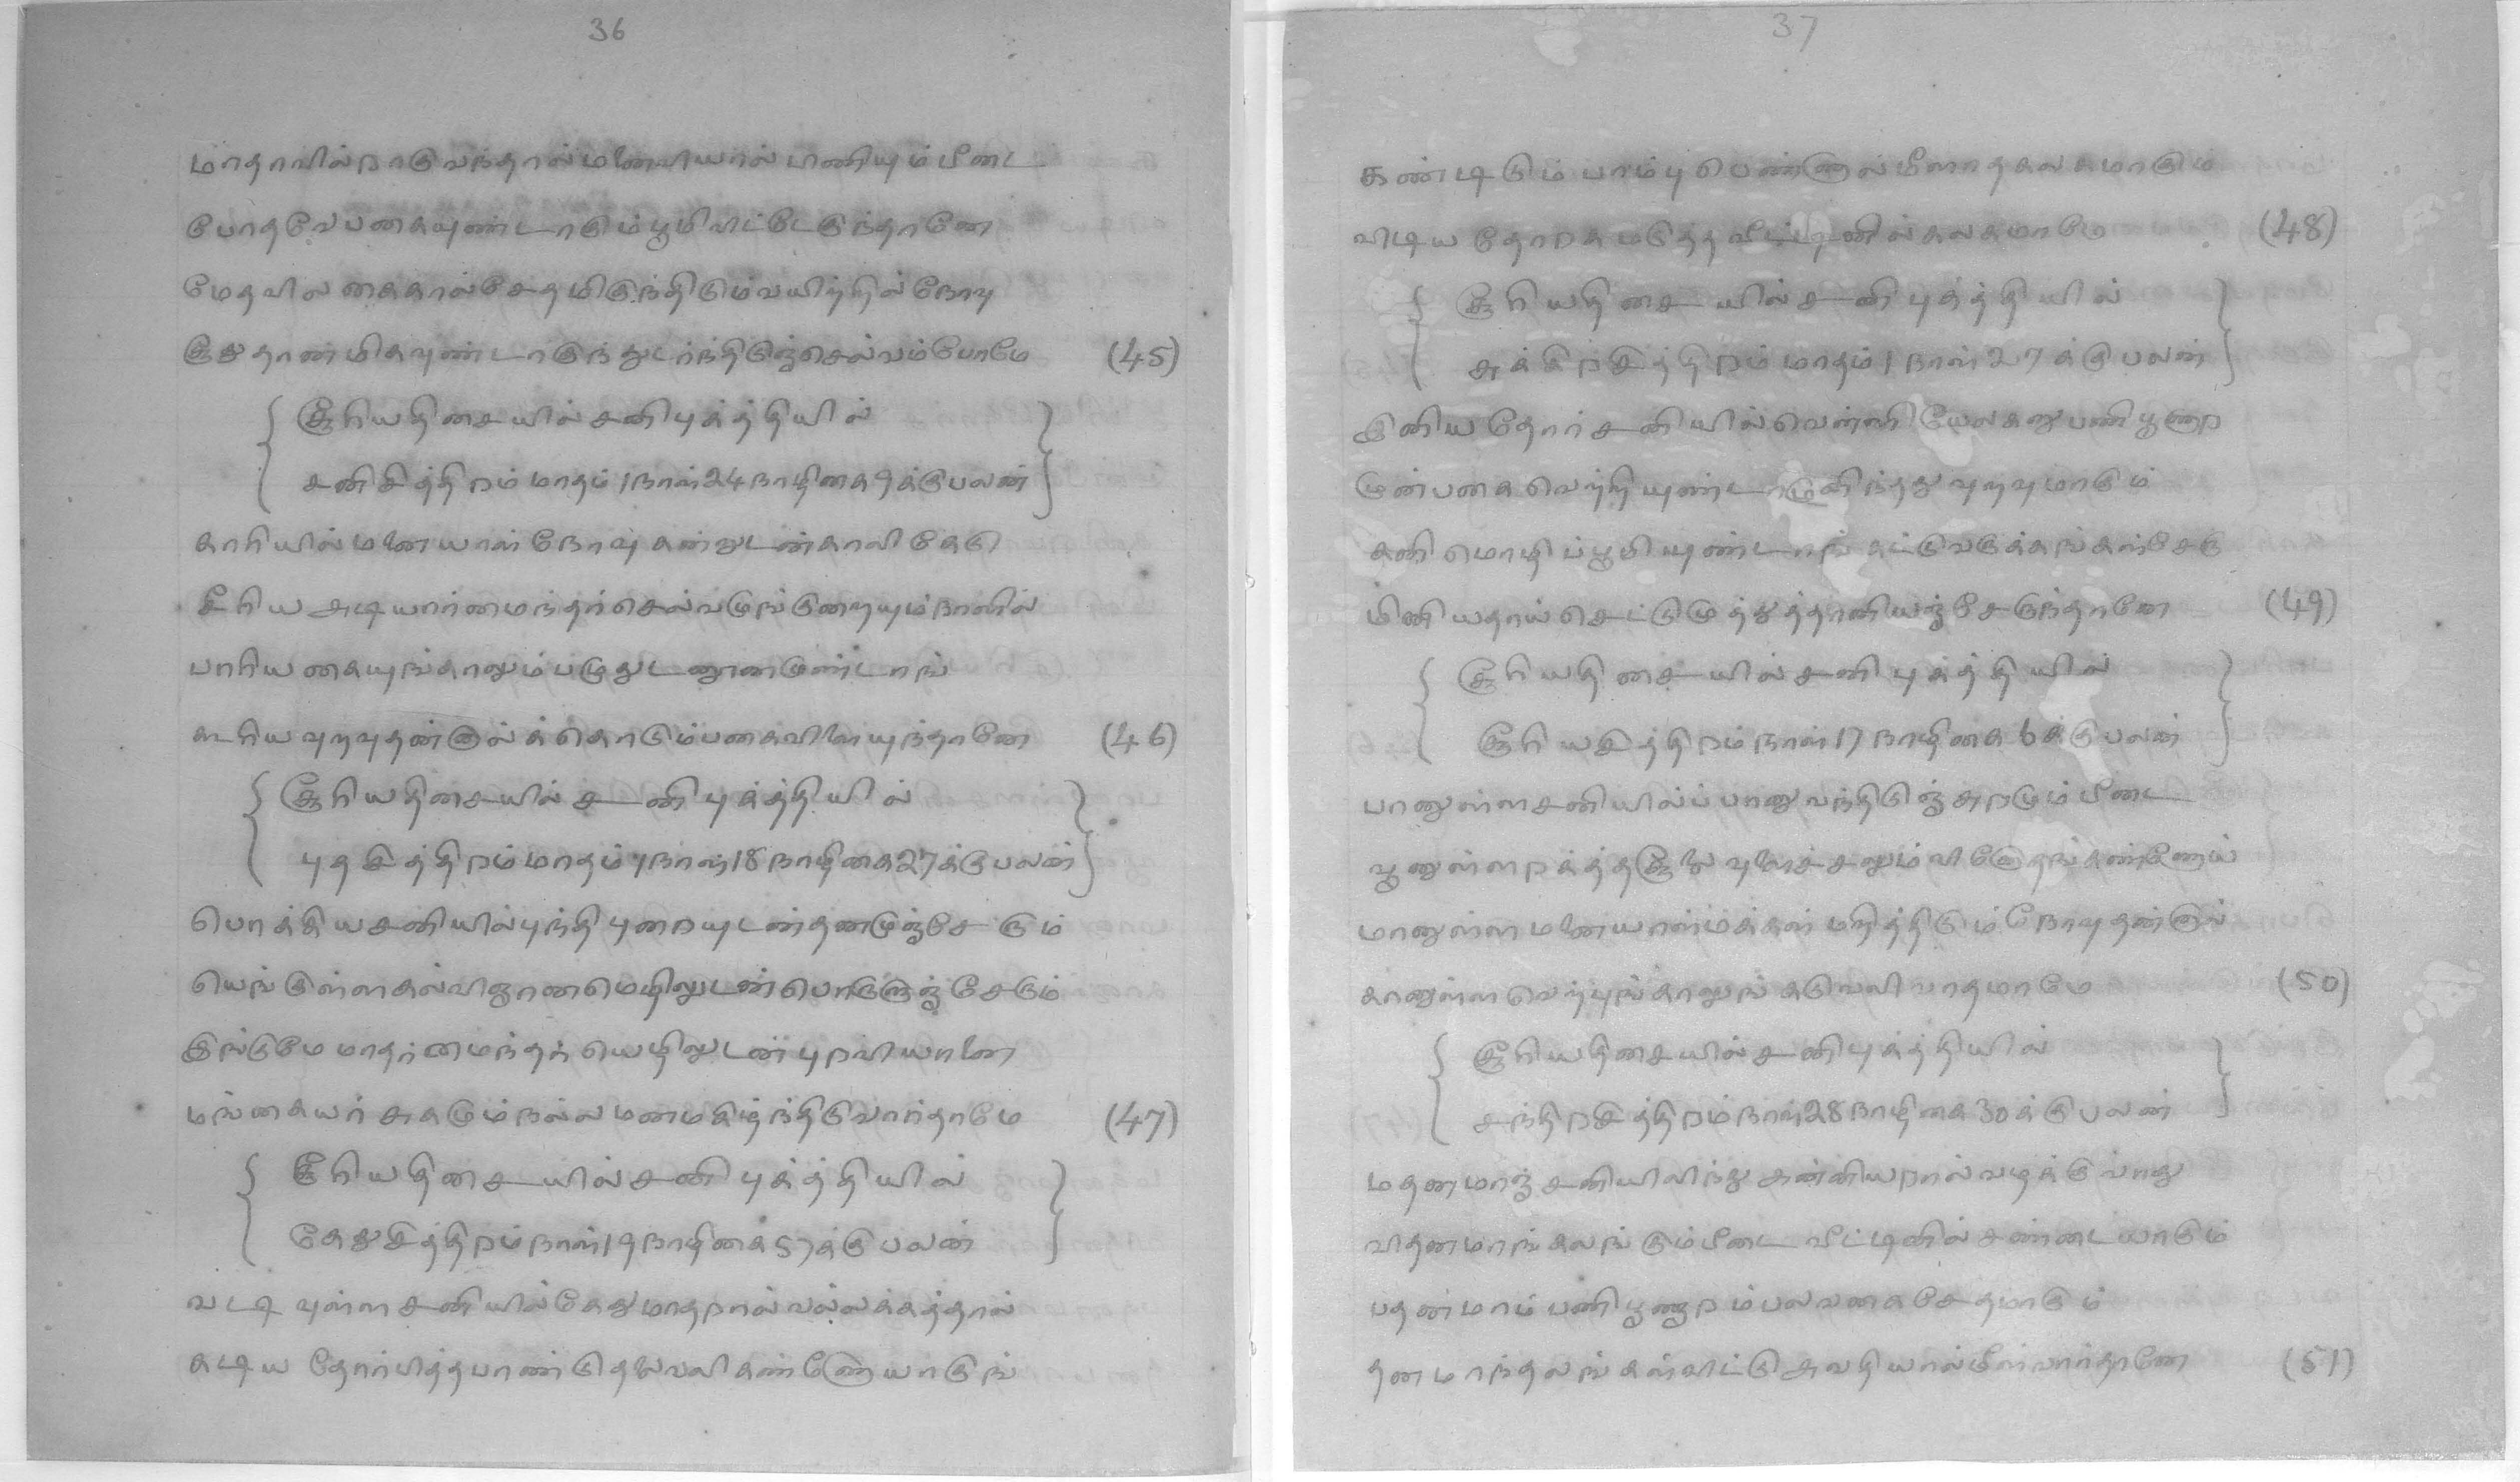 36
மாதாவில்றாகுவந்தால்மனைவியால்பிணியும்பீடை
போதவேபகையுண்டாகும்பூமிவிட்டேகுந்தானே
மேதவில கைகால்சேதமிகுந்திடும்வயிற்றில்நோவு
சூதுதான்மிகவுண்டாகுந்துடர்ந்திடுஞ்செல்வம்போமே (45)
{ சூரியதிசையில்சனிபுக்த்தியில்
சனிசித்திறம் மாதம் 1நாள்24நாழிகை9க்குபலன் }
காரியில்மனையாள்நோவு கன்றுடன்காலிகேடு
சீரிய அடியார்மைந்தர்செல்வமுங்குறையும்நாளில்
பாரியகையுங்காலும்பழுதுடனூனமுண்டாங்
கூரியவுறவுதன்னால்க்கொடும்பகைவிளையுந்தானே (46)
{ சூரியதிசையில்ச னி புக்த்தியில்
புதசித்திறம்மாதம்1நாள்18நாழிகை27க்குபலன் }
பொக்கியசனியில்புந்திபுறையுடன்தனமுஞ்சே ரும்
யெங்குள்ளகல்விஞானமெழிலுடன்பொருளுஞ்சேரும்
இங்குமேமாதர்மைந்தர் யெழிலுடன்புறவியானை
மங்கையர் சுகமும்நல்லமணமகிழ்ந்திடுவார்தாமே (47)
{ சூரியதிசையில்சனி புக்த்தியில்
கேதுசித்திறம்நாள்19நாழிகை57க்குபலன் }
வடிவுள்ளசனியில்கேதுமாதறால்வல்லக்கத்தால்
கடிய தோர்பித்தபாண்டுதலைவலிகண்ணோயாகுங்
37
கண்டிடும் பாம்பு பெண்ணால்மீளாதகலகமாகும்
விடிய தோறகமடுத்தவீட்டினில்கலகமாமே (48)
{ சூரியதிசை யில்சனி புக்த்தியில்
சுக்கிறசித்திறம் மாதம் 1 நாள்27க்குபலன் }
இனியதோர்சனியில்வெள்ளியேலகலுபணிபூணுற
முன்பகைவெற்றியுண்டாமுனிந்ததுவுறவுமாகும்
கனிமொழிப்பூமியுண்டாங்கட்டுவருக்கங்கள்சேரு
மினியதாய்செட்டுமுத்துத்தானியஞ்சேருந்தானே (49)
{ சூரியதிசையில்சனி புக்த்தியில்
சூரியசித்திறம்நாள்17நாழிகை6க்குபலன் }
பானுள்ளசனியில்ப்பானுவந்திடுஞ்சுறமும்பீடை
வூனுள்ளறக்த்தசூலைவுளைச்சலும்விரோதங்கண்ணோய்
மானுள்ளமனையாள்மக்கள் மரித்திடும்நோவுதன்னால்
கானுள்ளவெற்புங்காலுங்கடுவலிவாதமாமே (50)
{ சூரியதிசையில்சனிபுக்த்தியில்
சந்திறசித்திறம்நாள்28நாழிகை30க்குபலன் }
மதனமாஞ்சனியிலிந்துஅன்னியறால்வழக்குவாது
விதனமாங்கலங்கும்பீடை வீட்டினில்சண்டையாகும்
பதன்மாம்பணிபூணாறம்பலவகைசேதமாகும்
தனமாந்தலங்கள்விட்டுஅவதியால்மீள்வார்தானே (51)